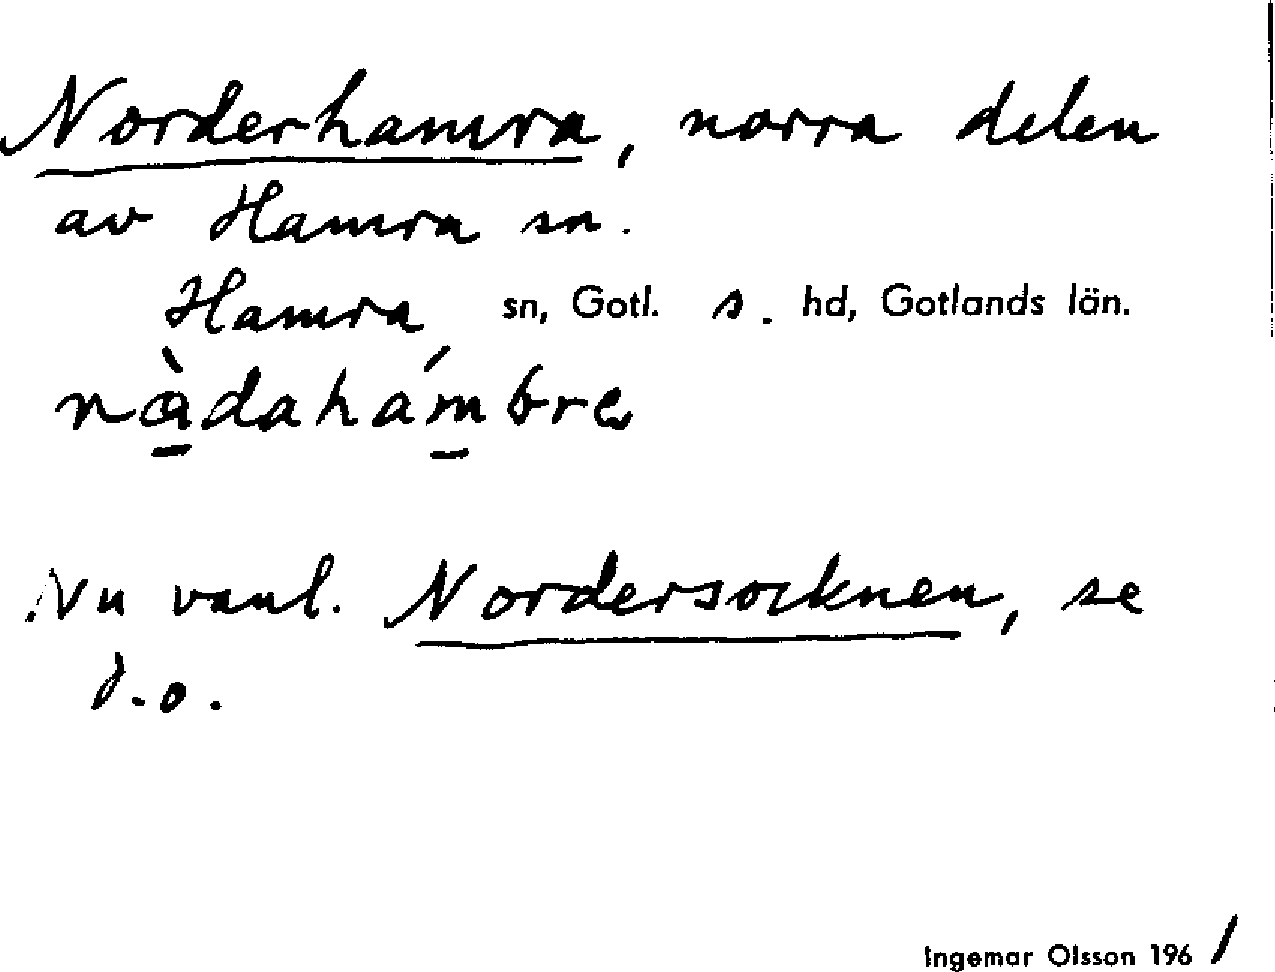 Norderhamra, norra delen
av Hamra sn.
Hamra sn, Gotl. s. hd, Gotlands län.
Nu vanl. Nordersocknen, se
d.o.
Ingemar Olsson 1961